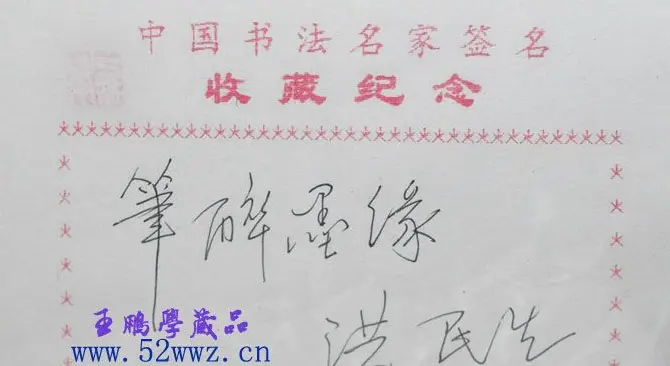 中国书法名家签名
收藏纪念
筆醉墨缘
洪民生
王鹏學藏品
www.52wwz.cn